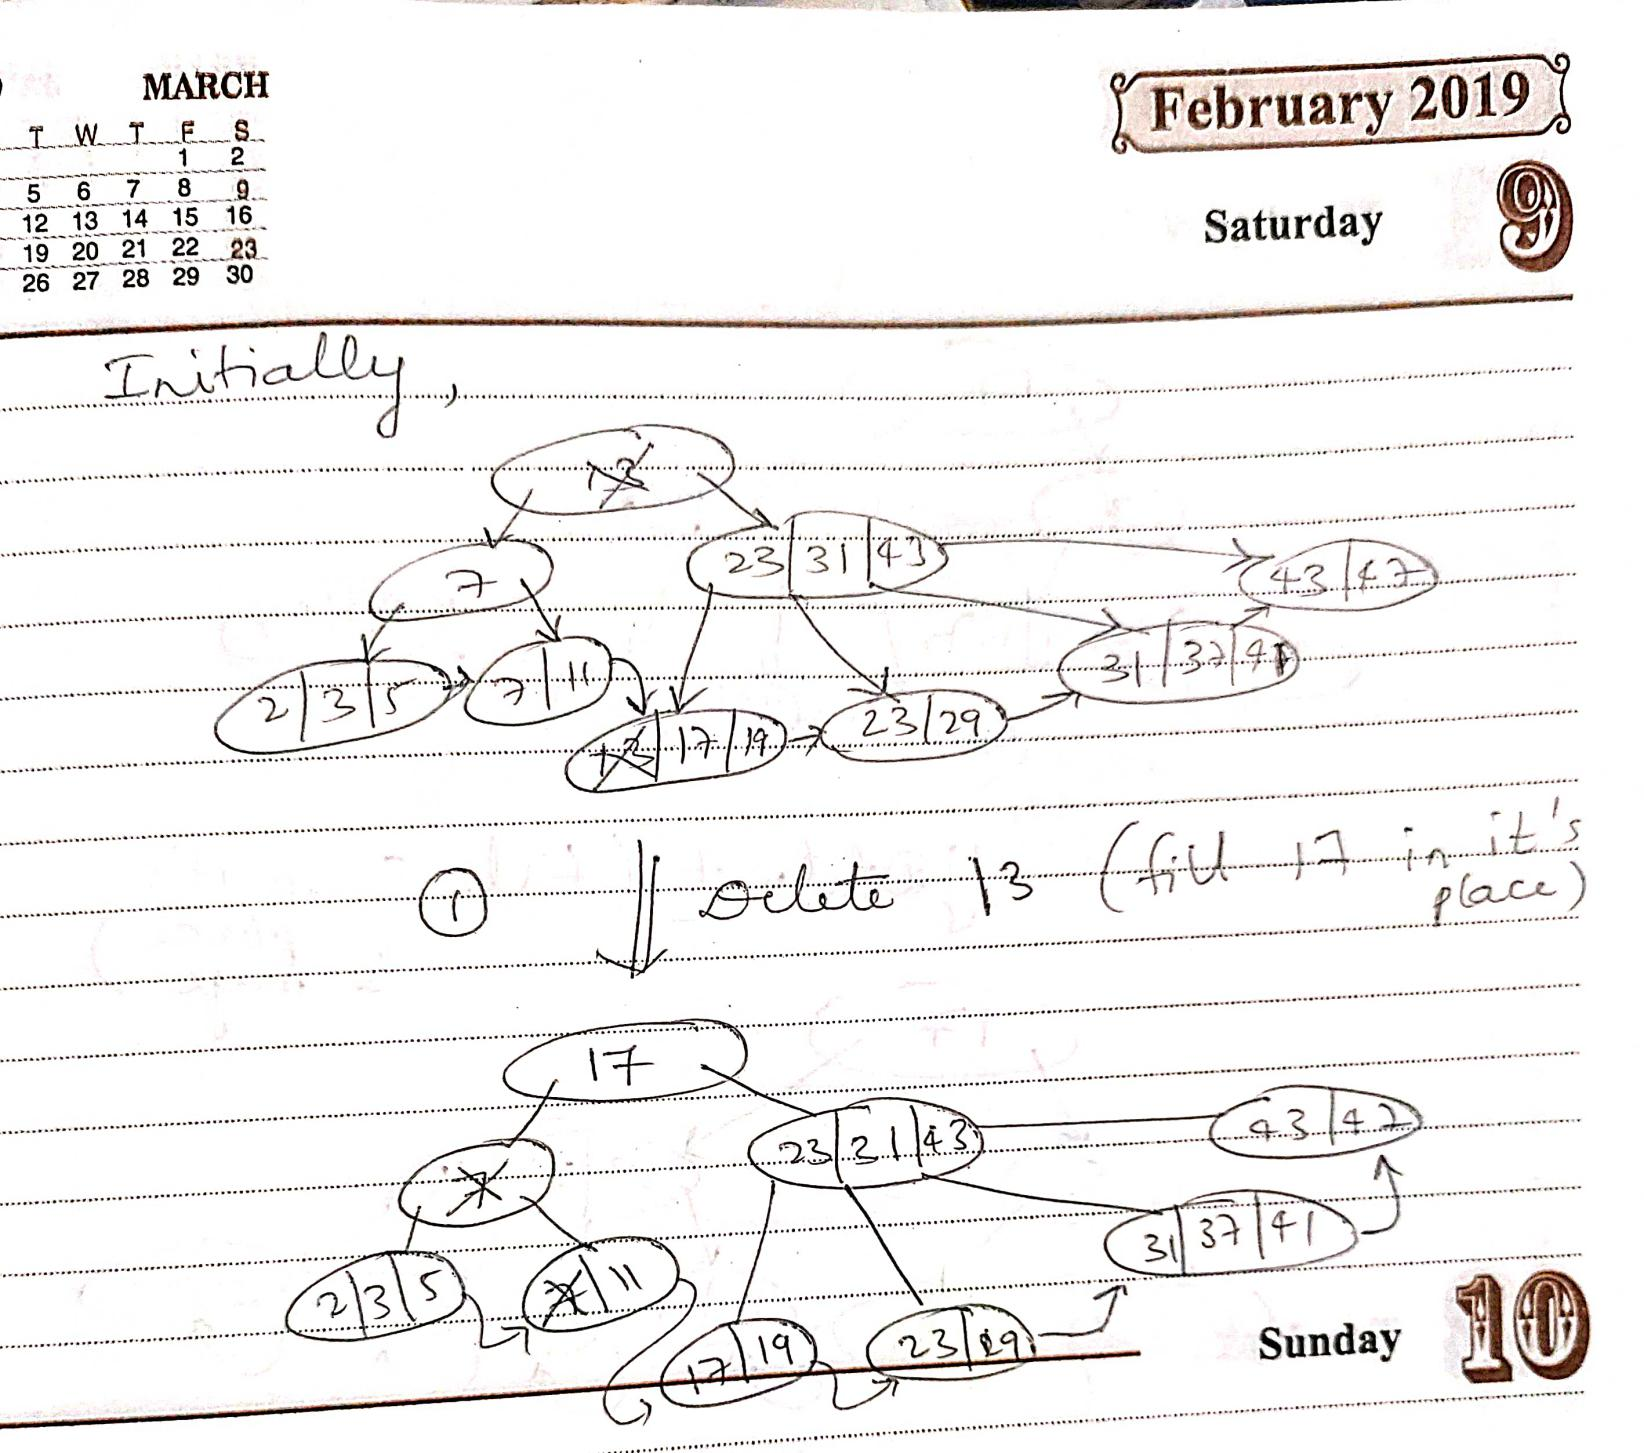 MARCH
T W T F S
1 2
5 6 7 8 9
12 13 14 15 16
19 20 21 22 23
26 27 28 29 30
February 2019
Saturday 9
Initially,
13
7
23 | 31 | 43
43 | 47
2 | 3 | 5
7 | 11
13 | 17 | 19
23 | 29
31 | 37 | 41
1 Delete 13 (fill 17 in it's
place)
17
7
23 | 31 | 43
43 | 47
2 | 3 | 5
7 | 11
17 | 19
23 | 29
31 | 37 | 41
Sunday 10